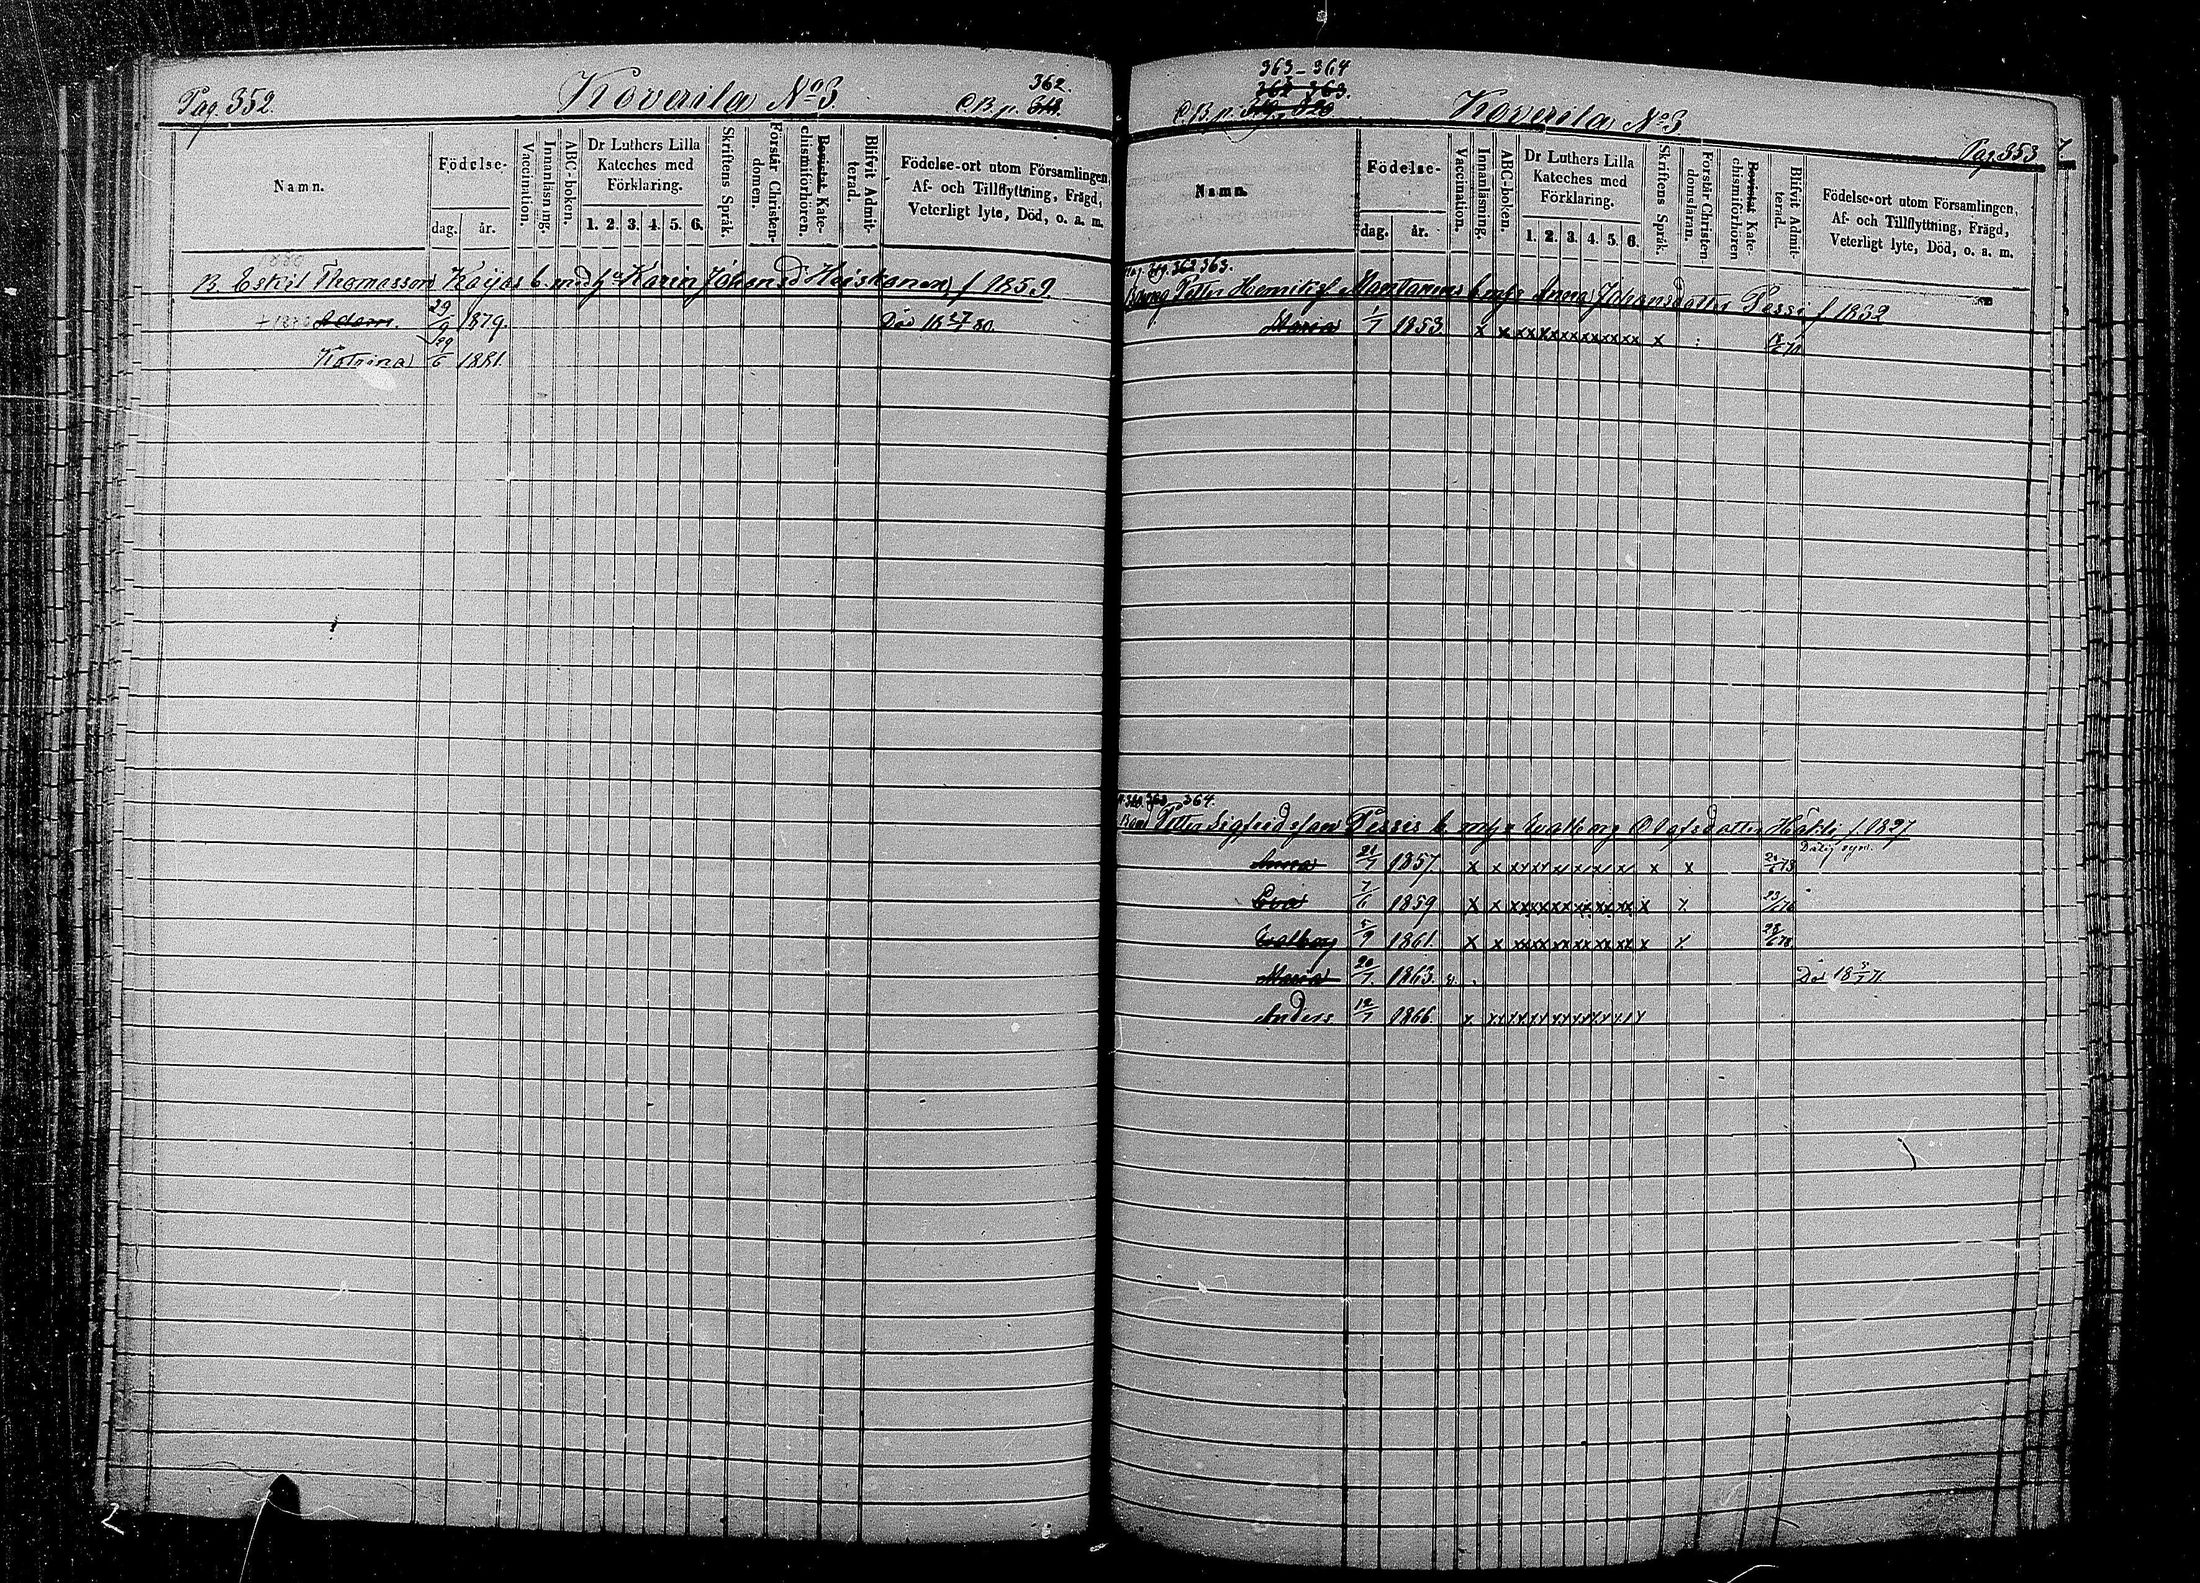 Pag. 352. Koverila No 3. 362.
C.B.p. 318.
Namn. Födelse- dag. år. Vaccination. Innanläsning. ABC-boken. Dr Luthers Lilla Kateches med Förklaring. 1. 2. 3. 4. 5. 6. Skriftens Språk. Förstår Christendomen. Bevistat Katechismiförhören. Blifvit Admitterad. Födelse-ort utom Församlingen, Af- och Tillflyttning, Frägd, Veterligt lyte, Död, o. a. m.
1880
B. Eskil Thomasson Kaijas b. med h Karin Johansd Heiskanen f 1859.
+1880 Adam. 29/9 1879. Död 18 27/1 80.
Katrina 29/6 1881.
363-364
362 363.
C.B.p. 319, 320 Koverila No 3
Pag 353
Namn. Födelse- dag. år. Vaccination. Innanläsning. ABC-boken. Dr Luthers Lilla Kateches med Förklaring. 1. 2. 3. 4. 5. 6. Skriftens Språk. Förstår Christendomsläran. Bevistat Katechismiförhören Blifvit Admitterad. Födelse-ort utom Församlingen, Af- och Tillflyttning, Frägd, Veterligt lyte, Död, o. a. m.
Pag. 319. 362 363.
Petter Henriksf Montonens b mhe Anna Johansdotter Pessi f 1832
Maria 1/7 1853 x x xx xx xx xx xx xx x
363 364.
Bond Petter Sigfridsson Pessis b. mhe Walborg Olofsdotter Häkli f. 1827
Dålig syn.
Anna 21/7 1857. x x xx xx xx xx xx x x x
Eva 7/6 1859 x x xx xx xx xx xx xx x x 23/6 76
Walborg 5/9 1861. x x xx xx xx xx xx xx x x 23/6 78
Maria 20/7 1863. Död 18 3/7 71.
Anders 12/7 1866 x. xx xx xx xx xx xx xx